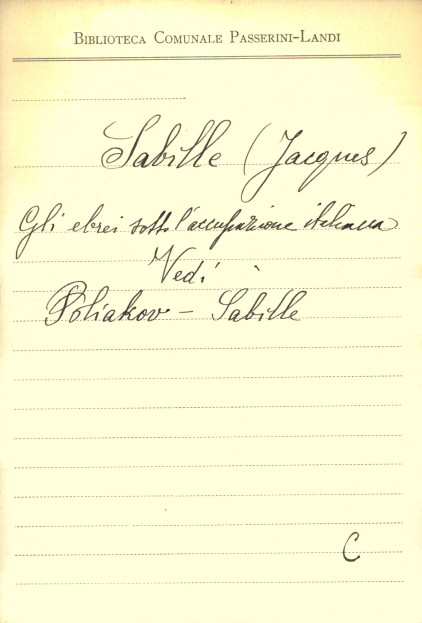 BIBLIOTECA COMUNALE PASSERINI-LANDI
Sabille (Jacques)
Gli ebrei sotto l'occupazione italiana
Vedi
Poliakov - Sabille
C